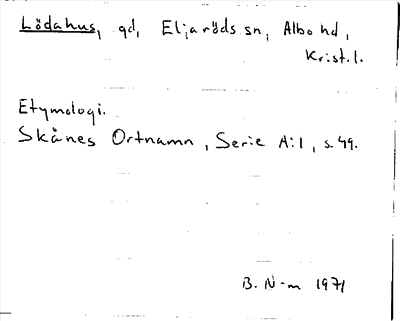 Lödahus, gd, Eljaröds sn, Albo hd,
Krist.l.
Etymologi.
Skånes Ortnamn, Serie A:1, s.49.
B. N-m 1971